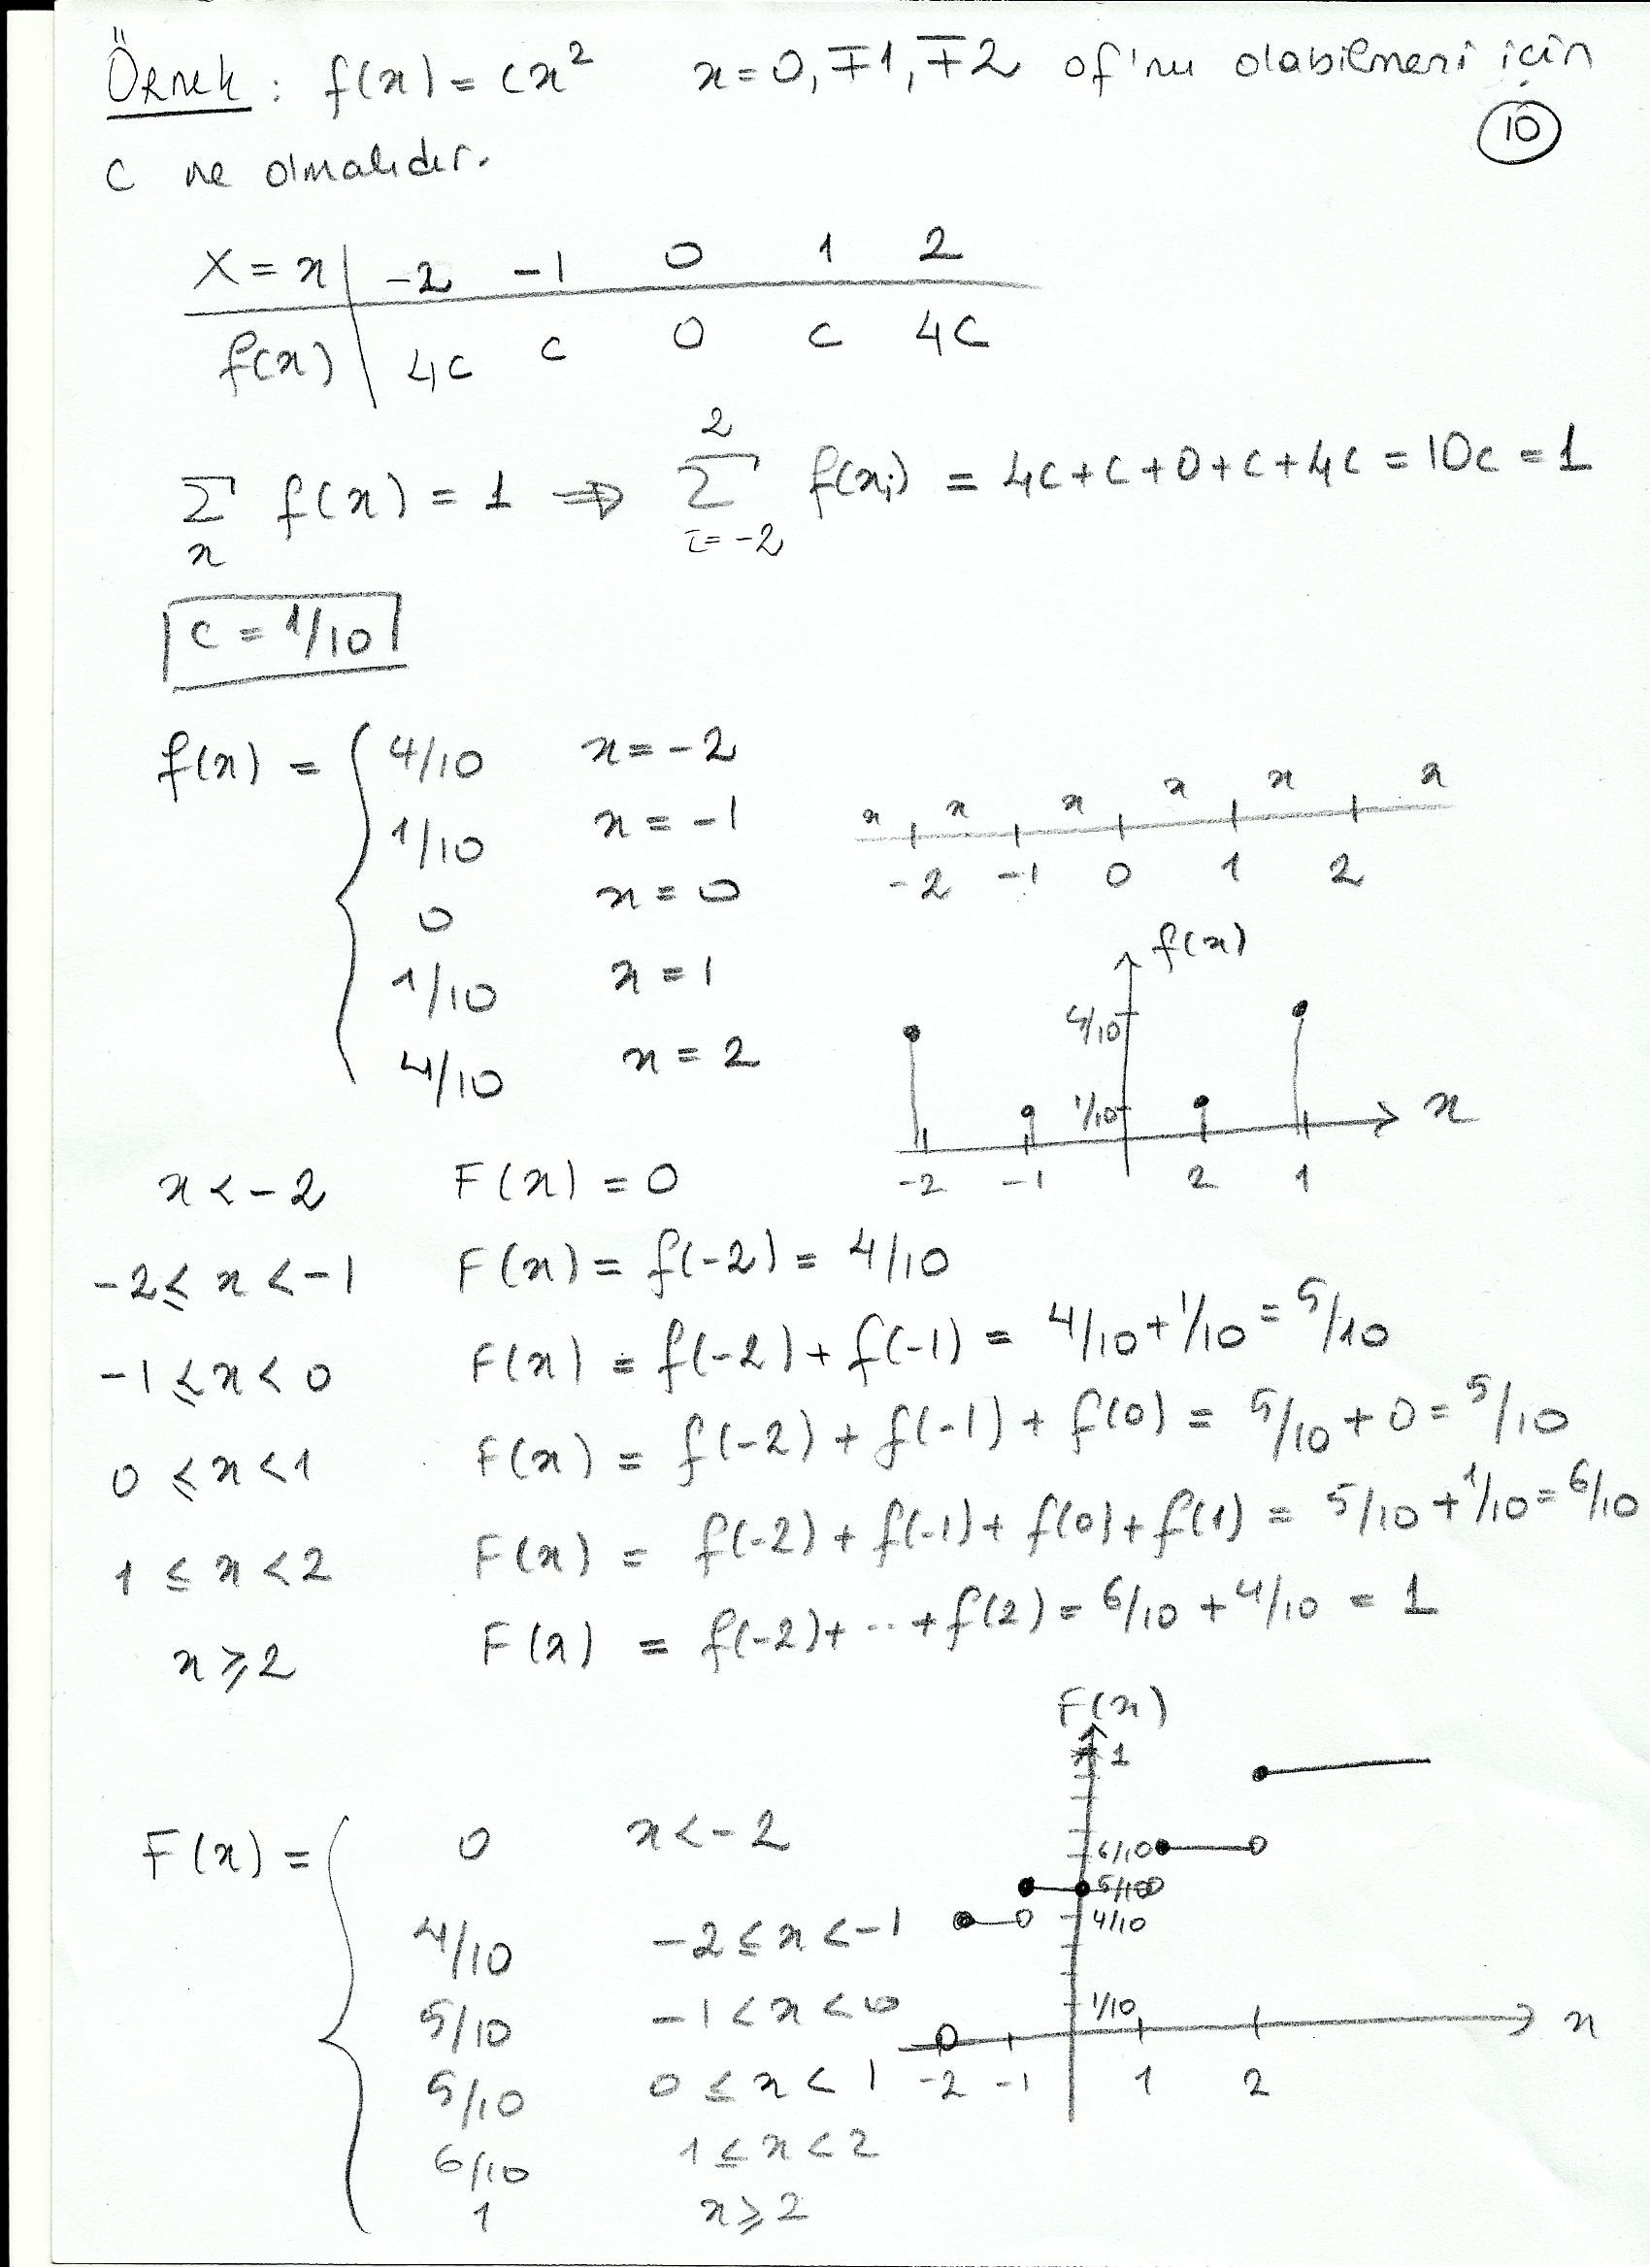 Örnek : f(x) = cx² x=0,∓1,∓2 of'nu olabilmesi için
10
c ne olmalıdır.
X=x | -2 -1 0 1 2
f(x) | 4c c 0 c 4c
∑ f(x) = 1 ⇒ ∑ f(xi) = 4c+c+0+c+4c = 10c = 1
x i=-2 2
c = 1/10
f(x) = { 4/10 x=-2
1/10 x=-1
0 x=0
1/10 x=1
4/10 x=2
x x x x x x
-2 -1 0 1 2
f(x)
4/10
1/10
x
-2 -1 2 1
x<-2 F(x) = 0
-2≤x<-1 F(x) = f(-2) = 4/10
-1≤x<0 F(x) = f(-2)+f(-1) = 4/10+1/10 = 5/10
0≤x<1 F(x) = f(-2)+f(-1)+f(0) = 5/10+0 = 5/10
1≤x<2 F(x) = f(-2)+f(-1)+f(0)+f(1) = 5/10+1/10 = 6/10
x≥2 F(x) = f(-2)+...+f(2) = 6/10+4/10 = 1
F(x) = { 0 x<-2
4/10 -2≤x<-1
5/10 -1<x<0
5/10 0≤x<1
6/10 1≤x<2
1 x≥2
F(x)
1
6/10
5/10
4/10
1/10
x
-2 -1 1 2